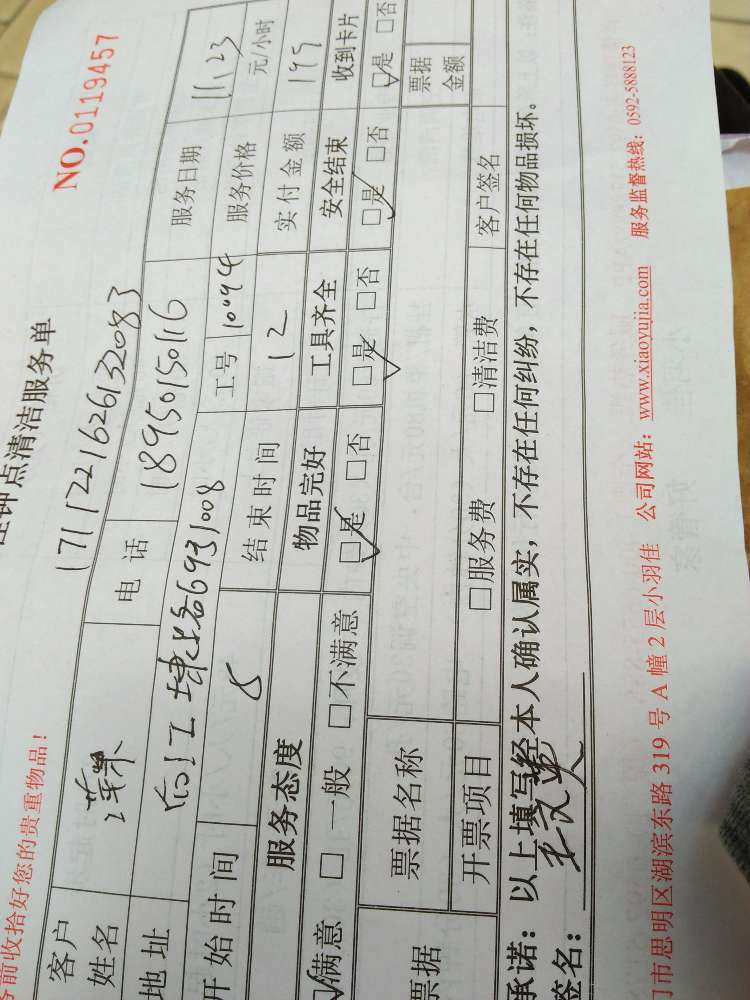 务前收拾好您的贵重物品！
住钟点清洁服务单
NO.0119457
1711221626132083
客户姓名 电话 18950150116 服务日期 11.23
地址 693 1008 工号 10094 服务价格 元/小时
开始时间 8 结束时间 12 实付金额 195
服务态度 物品完好 工具齐全 安全结束 收到卡片
☑满意 □一般 □不满意 ☑是 □否 ☑是 □否 ☑是 □否 ☑是 □否
票据 票据名称 票据金额
开票项目 □服务费 □清洁费 客户签名
承诺：以上填写经本人确认属实，不存在任何纠纷，不存在任何物品损坏。
签名：
门市思明区湖滨东路 319 号 A 幢 2 层小羽佳 公司网站：www.xiaoyujia.com 服务监督热线：0592-5888123